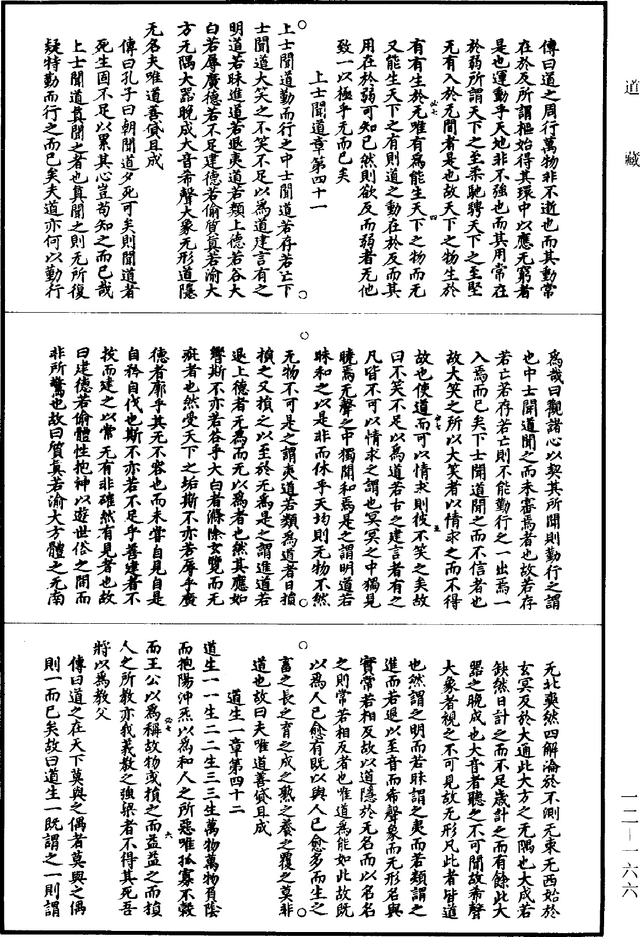 道藏
傳曰道之周行萬物非不逝也而其動常
在於反所謂樞始得其環中以應无窮者
是也運動乎天地非不強也而其用常在
於弱所謂天下之至柔馳騁天下之至堅
无有入於无間者是也故天下之物生於
有有生於无唯有為能生天下之物而无
又能生天下之有則道之動在於反而其
用在於弱可知已然則欲反而弱者无他
致一以極乎无而已矣
上士聞道章第四十一
上士聞道勤而行之中士聞道若存若亡下
士聞道大笑之不笑不足以為道建言有之
明道若昧進道若退夷道若類上德若谷大
白若辱廣德若不足建德若偷質真若渝大
方无隅大器晚成大音希聲大象无形道隱
无名夫唯道善貸且成
傳曰孔子曰朝聞道夕死可矣則聞道者
死生固不足以累其心豈苟知之而已哉
上士聞道真聞之者也真聞之則无所復
疑特勤而行之而已矣夫道亦何以勤行
為哉曰觀諸心以契其所聞則勤行之謂
也中士聞道聞之而未審焉者也故若存
若亡若存若亡則不能勤行之一出焉一
入焉而已矣下士聞道聞之而不信者也
故大笑之所以大笑者以情求之而不得
故也使道而可以情求則彼不笑之矣故
曰不笑不足以為道若古之建言者有之
凡皆不可以情求之謂也冥冥之中獨見
曉焉无聲之中獨聞和焉是之謂明道若
昧和之以是非而休乎天均則无物不然
无物不可是之謂夷道若類為道者日損
損之又損之以至於无為是之謂進道若
退上德者无為而无以為者也然其應如
響斯不亦若谷乎大白者滌除玄覽而无
疵者也然受天下之垢斯不亦若辱乎廣
德者廓乎其无不容也而未嘗自見自是
自矜自伐也斯不亦若不足乎善建者不
拔而建之以常无有非確然有見者也故
曰建德若偷體性抱神以遊世俗之間而
非所驚也故曰質真若渝大方體之无南
无北奭然四解淪於不測无東无西始於
玄冥反於大通此大方之无隅也大成若
缺然日計之而不足歲計之而有餘此大
器之晚成也大音者聽之不可聞故希聲
大象者視之不可見故无形凡此者皆道
也然謂之明而若昧謂之夷而若類謂之
進而若退以至音而希聲象而无形名與
實常若相反故以道隱於无名而以名名
之則常若相反者也唯道為能如此故既
以為人己愈有既以與人己愈多而生之
畜之長之育之成之熟之養之覆之莫非
道也故曰夫唯道善貸且成
道生一章第四十二
道生一一生二二生三三生萬物萬物負陰
而抱陽沖炁以為和人之所惡唯孤寡不穀
而王公以為稱故物或損之而益益之而損
人之所教亦我義教之強梁者不得其死吾
將以為教父
傳曰道之在天下莫與之偶者莫與之偶
則一而已矣故曰道生一既謂之一則謂
一二—一六六